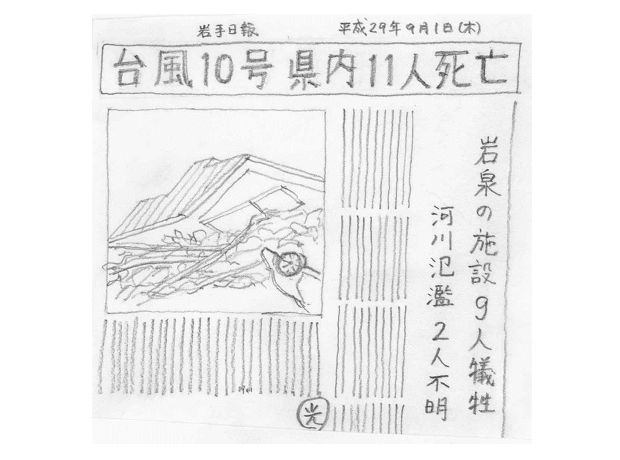 岩手日報
平成29年9月1日(木)
台風10号 県内11人死亡
岩泉の施設9人犠牲
河川氾濫2人不明
光